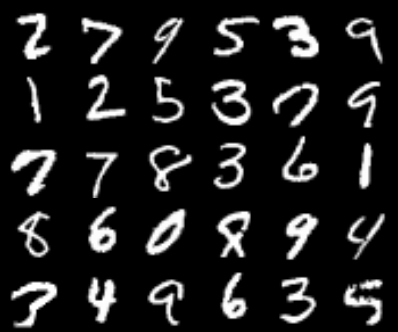 2 7 9 5 3 9
1 2 5 3 7 9
7 7 8 3 6 1
8 6 0 8 9 4
3 4 9 6 3 5